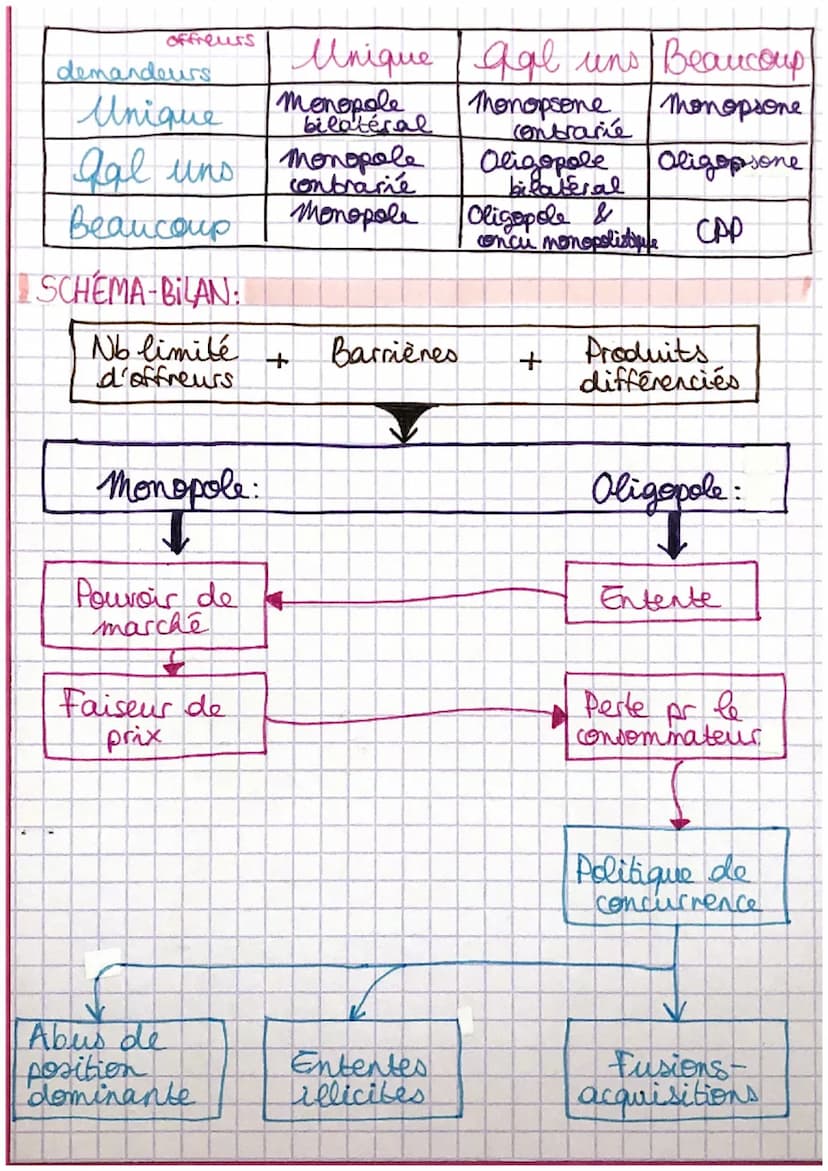 offreurs
demandeurs
Unique
Qql uns
Beaucoup
Unique
Monopole
bilatéral
Monopsone
contrarié
Monopsone
Qql uns
Monopole
contrarié
Oligopole
bilatéral
Oligopsone
Beaucoup
Monopole
Oligopole &
concu monopolistique
CPP
SCHÉMA-BiLAN:
Nb limité
d'offreurs
+
Barrières
+
Produits
différenciés
Monopole:
Oligopole:
Pouvoir de
marché
Entente
Faiseur de
prix
Perte pr le
consommateur
Politique de
concurrence
Abus de
position
dominante
Ententes
illicites
Fusions-
acquisitions